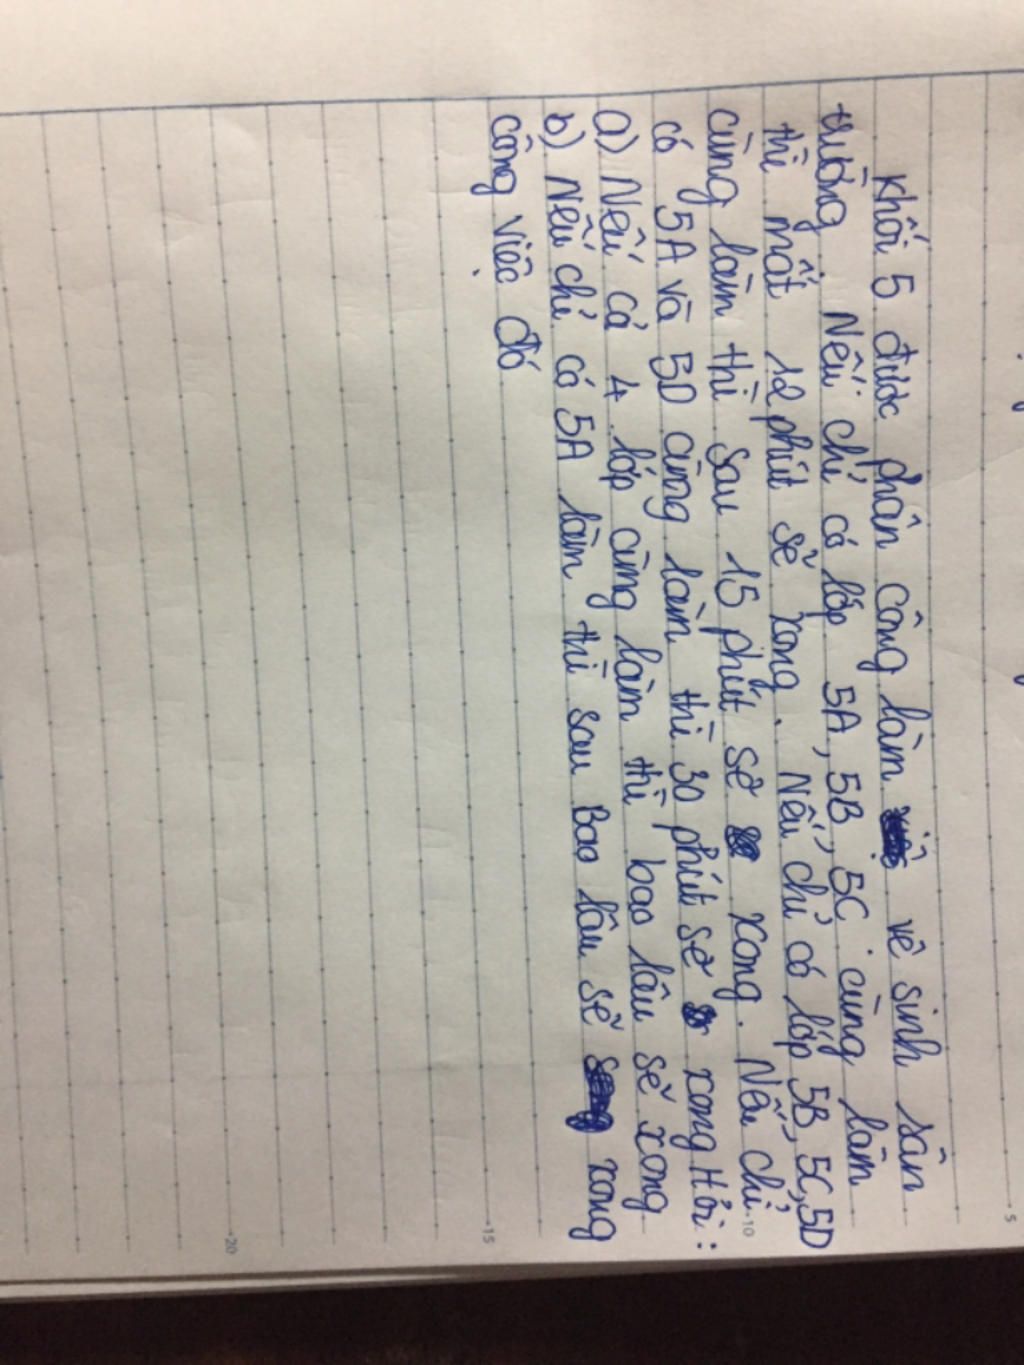 Khối 5 được phân công làm vệ sinh sân
trường. Nếu chỉ có lớp 5A, 5B, 5C cùng làm
thì mất 12 phút sẽ xong. Nếu chỉ có lớp 5B, 5C, 5D
cùng làm thì sau 15 phút sẽ xong. Nếu chỉ
có 5A và 5D cùng làm thì 30 phút sẽ xong Hỏi:
a) Nếu cả 4 lớp cùng làm thì bao lâu sẽ xong
b) Nếu chỉ có 5A làm thì sau Bao lâu sẽ xong
công việc đó
5
10
15
20